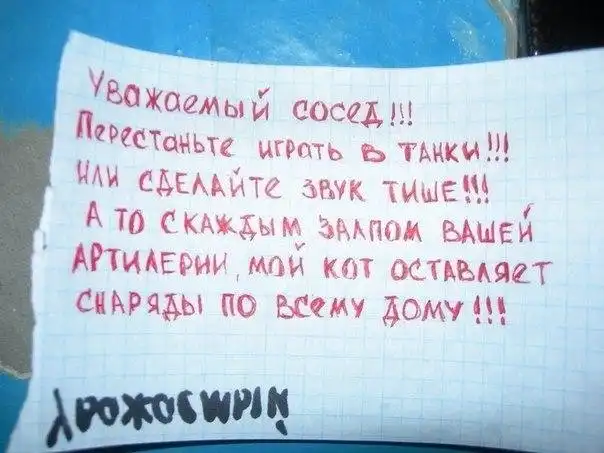 Уважаемый сосед!!!
Перестаньте играть в танки!!!
Или сделайте звук тише!!!
А ТО С КАЖДЫМ ЗАЛПОМ ВАШЕЙ
АРТИЛЕРИИ, МОЙ КОТ ОСТАВЛЯЕТ
СНАРЯДЫ ПО ВСЕМУ ДОМУ!!!